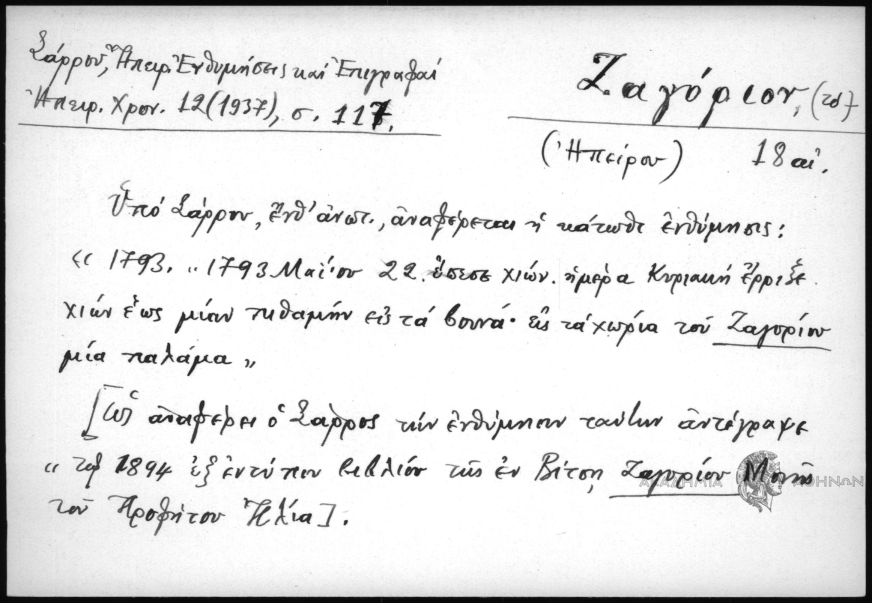 Σάρρου, Ἠπειρ. Ἐνθυμήσεις καὶ Ἐπιγραφαί
Ἠπειρ. Χρον. 12 (1937), σ. 117.
Ζαγόριον, (τό)
(Ἠπείρου) 18 αἰ.
Ὑπό Σάρρου, ἔνθ' ἀνωτ., ἀναφέρεται ἡ κάτωθι ἐνθύμησις:
«1793. " 1793 Μαΐου 22. ἔπεσε χιών. ἡμέρα Κυριακή ἔρριξε
χιών ἕως μίαν πιθαμήν εἰς τά βουνά· εἰς τά χωρία τοῦ Ζαγορίου
μία παλάμα"
[Ὡς ἀναφέρει ὁ Σάρρος τήν ἐνθύμησιν ταύτην ἀντέγραψε
" τῷ 1894 ἐξ ἐντύπου βιβλίου τῆς ἐν Βίτσῃ Ζαγορίου Μονῆς
τοῦ Προφήτου Ἠλία].
ΑΚΑΔΗΜΙΑ ΑΘΗΝΩΝ